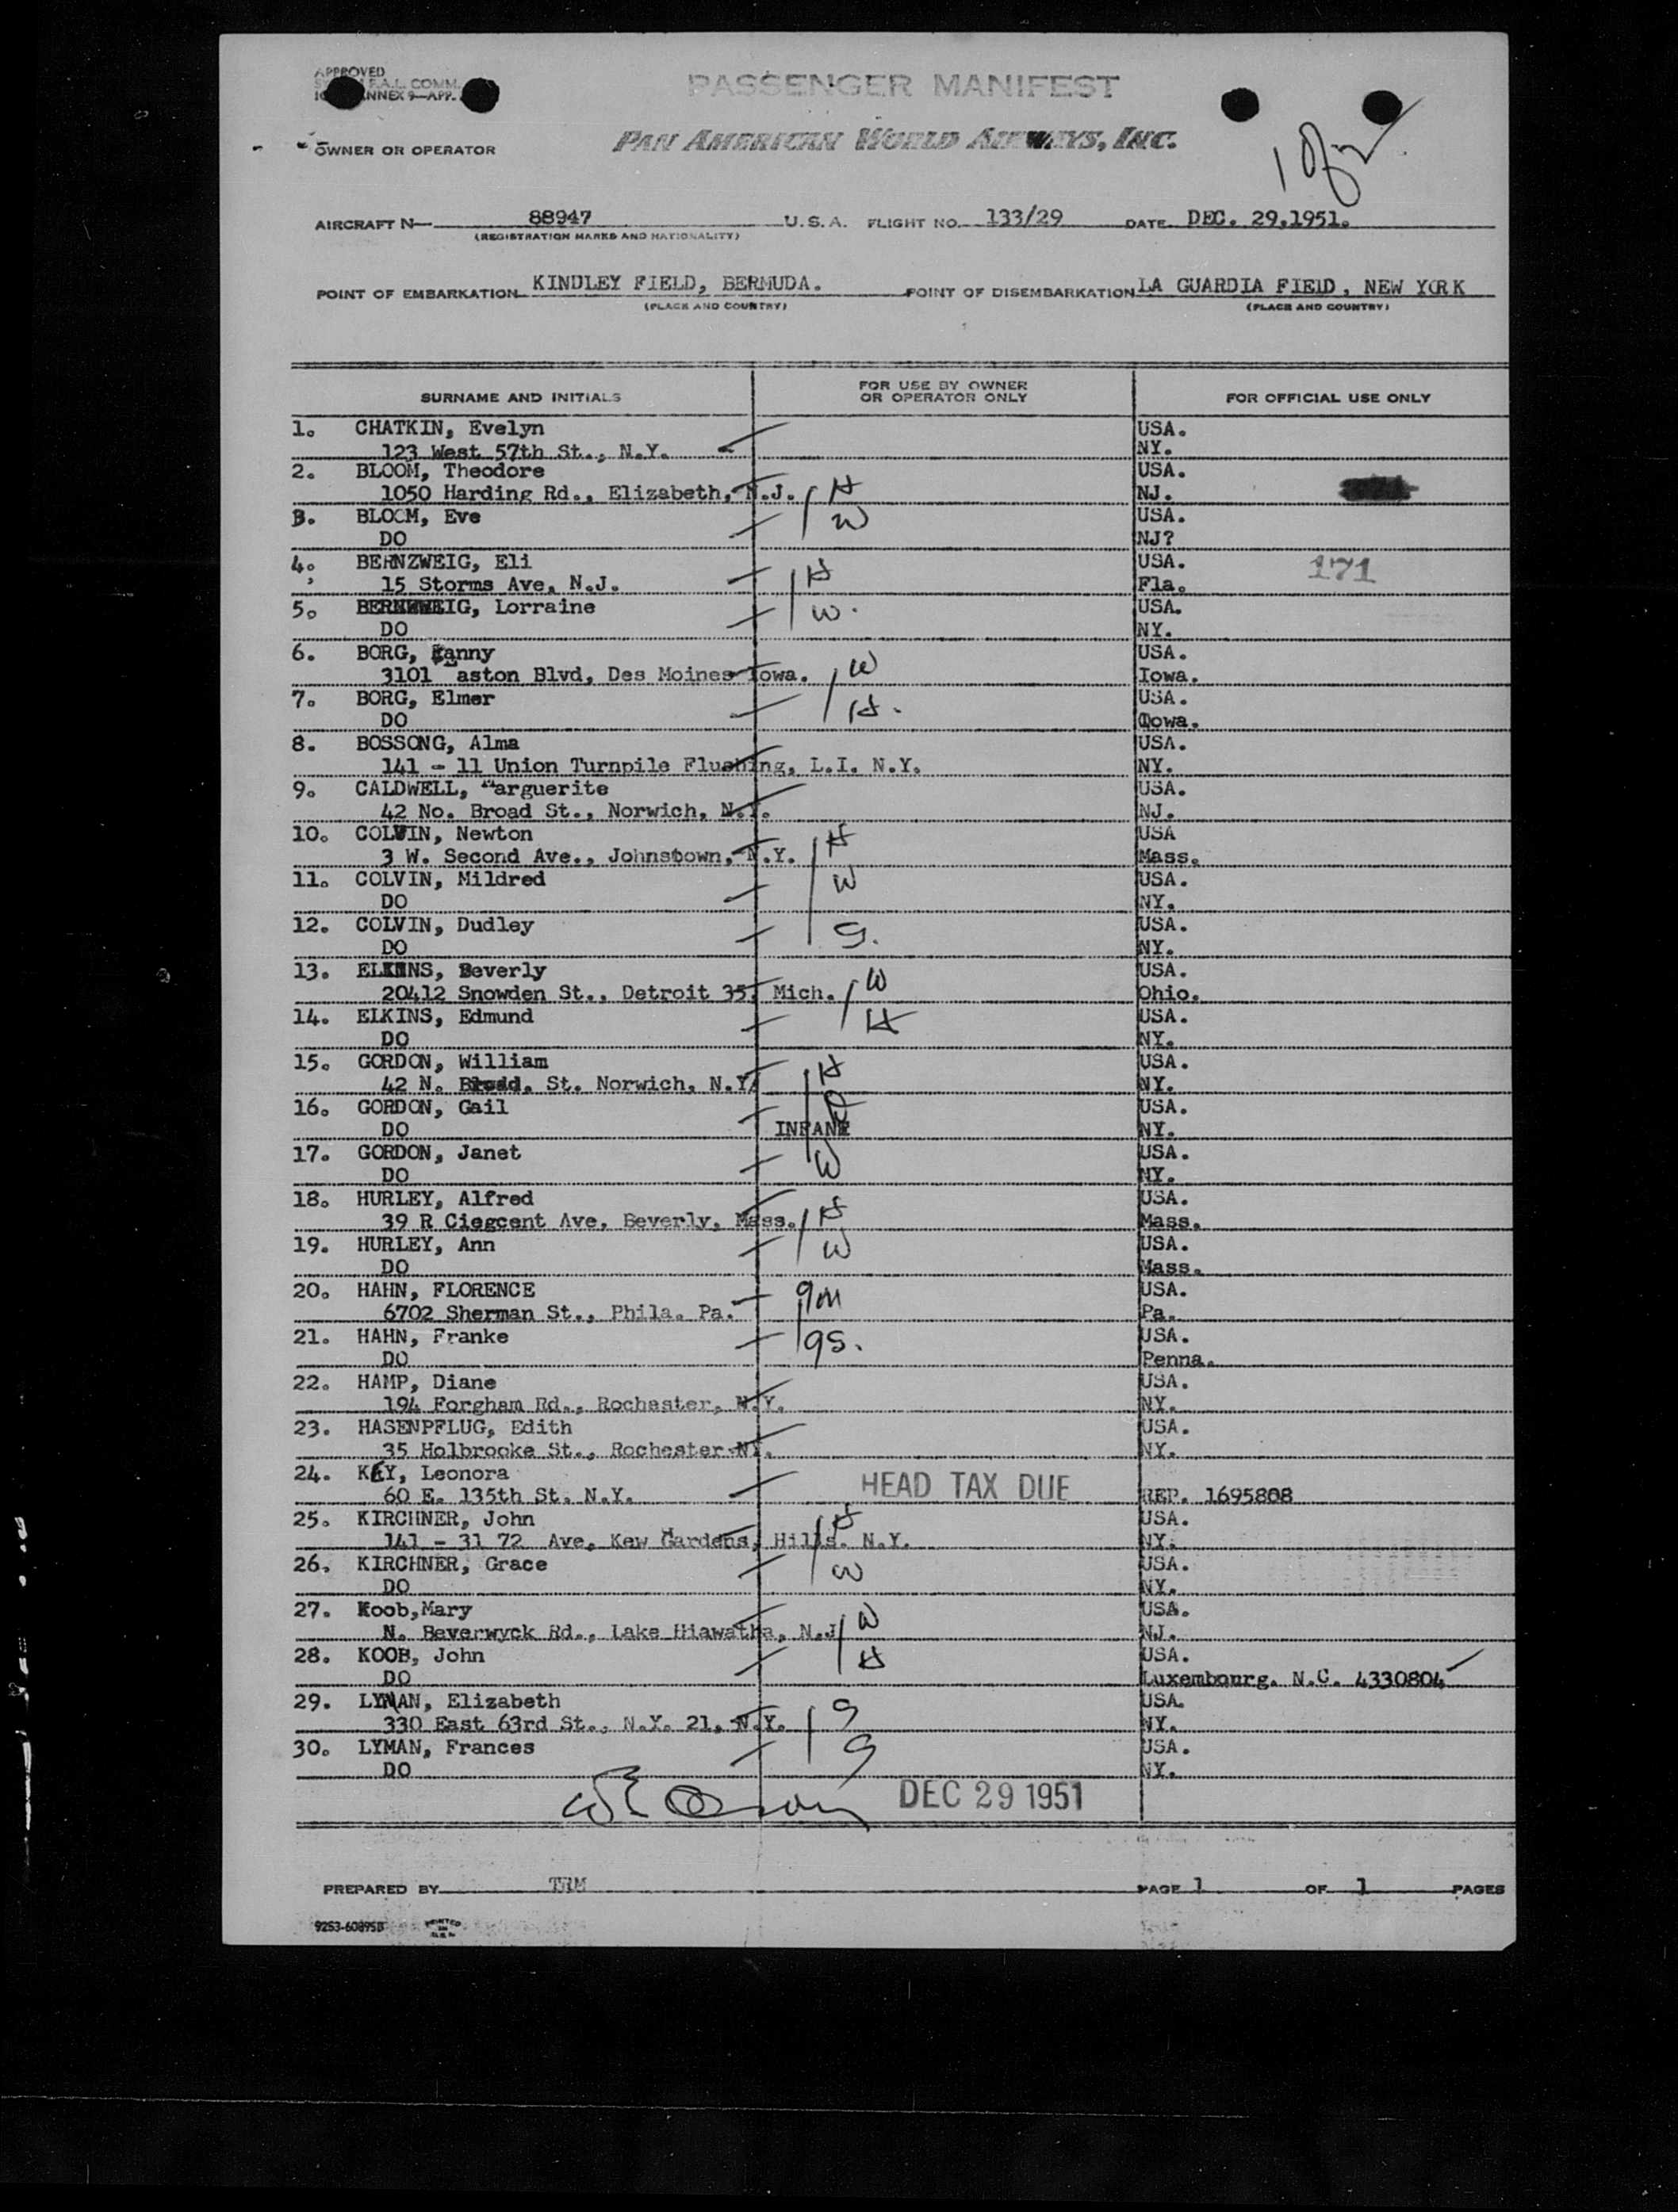 APPROVED
F.A.L. COMM.
ANNEX 9—APP.
PASSENGER MANIFEST
OWNER OR OPERATOR PAN AMERICAN WORLD AIRWAYS, INC.
AIRCRAFT N— 88947 U.S.A. FLIGHT NO. 133/29 DATE DEC. 29,1951.
(REGISTRATION MARKS AND NATIONALITY)
POINT OF EMBARKATION KINDLEY FIELD, BERMUDA. POINT OF DISEMBARKATION LA GUARDIA FIELD, NEW YORK
(PLACE AND COUNTRY) (PLACE AND COUNTRY)
SURNAME AND INITIALS FOR USE BY OWNER OR OPERATOR ONLY FOR OFFICIAL USE ONLY
1. CHATKIN, Evelyn USA.
123 West 57th St., N.Y. NY.
2. BLOOM, Theodore USA.
1050 Harding Rd., Elizabeth, N.J. H NJ.
3. BLOOM, Eve W USA.
DO NJ?
4. BERNZWEIG, Eli USA. 171
15 Storms Ave, N.J. H Fla.
5. Lorraine W. USA.
DO NY.
6. BORG, USA.
3101 aston Blvd, Des Moines Iowa. W Iowa.
7. BORG, Elmer H. USA.
DO Iowa.
8. BOSSONG, Alma USA.
141 - 11 Union Turnpile Flushing, L.I. N.Y. NY.
9. CALDWELL, Marguerite USA.
42 No. Broad St., Norwich, N.Y. NJ.
10. COLVIN, Newton H USA
3 W. Second Ave., Johnstown, N.Y. Mass.
11. COLVIN, Mildred W USA.
DO NY.
12. COLVIN, Dudley S. USA.
DO NY.
13. ELKINS, Beverly W USA.
20412 Snowden St., Detroit 35, Mich. Ohio.
14. ELKINS, Edmund H USA.
DO NY.
15. GORDON, William H USA.
42 N. Broad. St. Norwich, N.Y. NY.
16. GORDON, Gail USA.
DO INFANT NY.
17. GORDON, Janet W USA.
DO NY.
18. HURLEY, Alfred H USA.
39 R Ciegcent Ave, Beverly, Mass. Mass.
19. HURLEY, Ann W USA.
DO Mass.
20. HAHN, FLORENCE gm USA.
6702 Sherman St., Phila. Pa. Pa.
21. HAHN, Franke gs. USA.
DO Penna.
22. HAMP, Diane USA.
194 Forgham Rd., Rochester, N.Y. NY.
23. HASENPFLUG, Edith USA.
35 Holbrooke St., Rochester NY. NY.
24. KEY, Leonora HEAD TAX DUE
60 E. 135th St. N.Y. REP. 1695808
25. KIRCHNER, John H USA.
141 - 31 72 Ave, Kew Gardens, Hills. N.Y. NY.
26. KIRCHNER, Grace W USA.
DO NY.
27. Koob,Mary W USA.
N. Beverwyck Rd., Lake Hiawatha, N.J NJ.
28. KOOB, John H USA.
DO Luxembourg. N.C. 4330804
29. LYMAN, Elizabeth S USA.
330 East 63rd St., N.Y. 21, N.Y. NY.
30. LYMAN, Frances S USA.
DO NY.
DEC 29 1951
PREPARED BY TRM PAGE 1 OF 1 PAGES
9253-60895B PRINTED IN U.S.A.